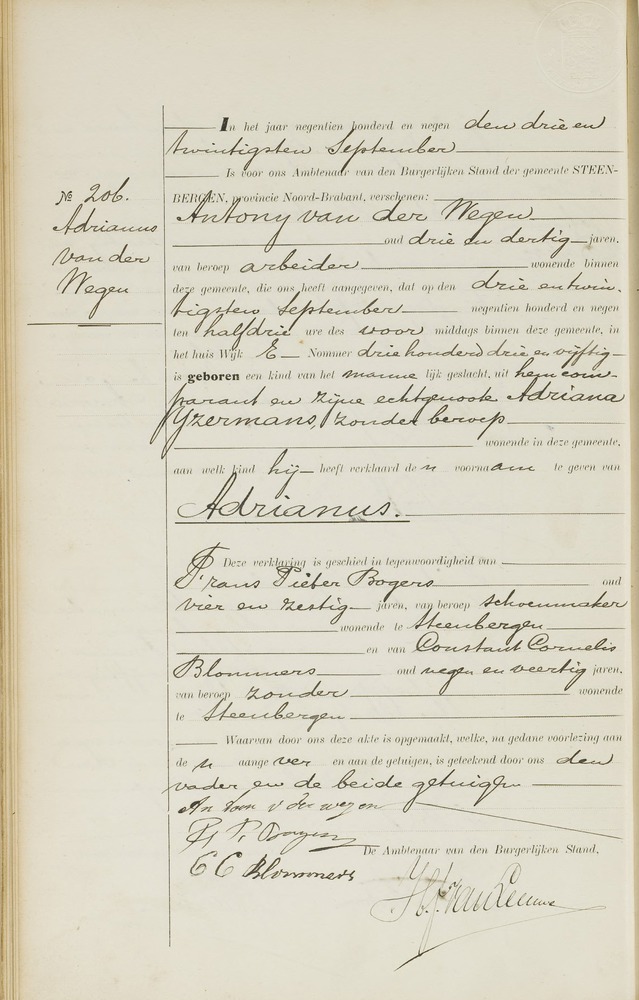 No 206.
Adrianus
van der
Wegen
In het jaar negentien honderd en negen den drie en
twintigsten September
Is voor ons Ambtenaar van den Burgerlijken Stand der gemeente STEEN-
BERGEN, provincie Noord-Brabant, verschenen:
Antony van der Wegen
oud drie en dertig jaren,
van beroep arbeider wonende binnen
deze gemeente, die ons heeft aangegeven, dat op den drie en twin-
tigsten September negentien honderd en negen
ten half drie ure des voor middags binnen deze gemeente, in
het huis Wijk E Nommer driehonderd drie en vijftig
is geboren een kind van het manne lijk geslacht, uit hem com-
parant en zijne echtgenoote Adriana
Yzermans, zonder beroep
wonende in deze gemeente,
aan welk kind hij heeft verklaard de n voornaam te geven van
Adrianus.
Deze verklaring is geschied in tegenwoordigheid van
Frans Pieter Bogers oud
vier en zestig jaren, van beroep schoenmaker
wonende te Steenbergen
en van Constant Cornelis
Blommers oud negen en veertig jaren,
van beroep zonder wonende
te Steenbergen
Waarvan door ons deze akte is opgemaakt, welke, na gedane voorlezing aan
de n aange ver en aan de getuigen, is geteekend door ons den
vader en de beide getuigen
An toon v der wegen
F. P. Bogers
C C Blommers
De Ambtenaar van den Burgerlijken Stand,
van Leeuwe